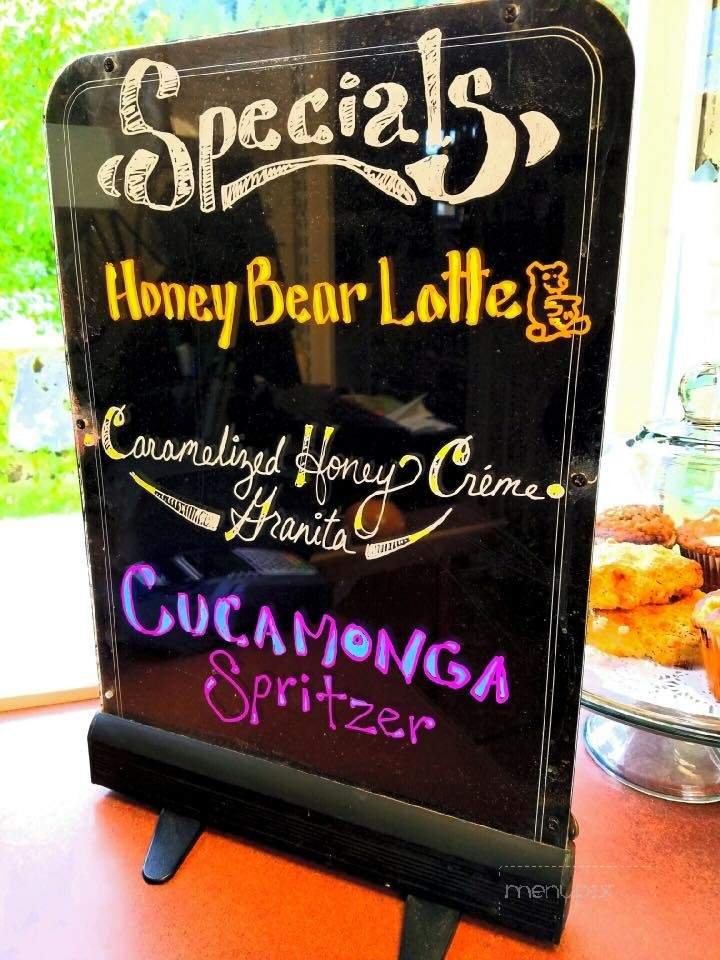 Specials
Honey Bear Latte
Caramelized Honey Créme
Granita
CUCAMONGA
Spritzer
menupix